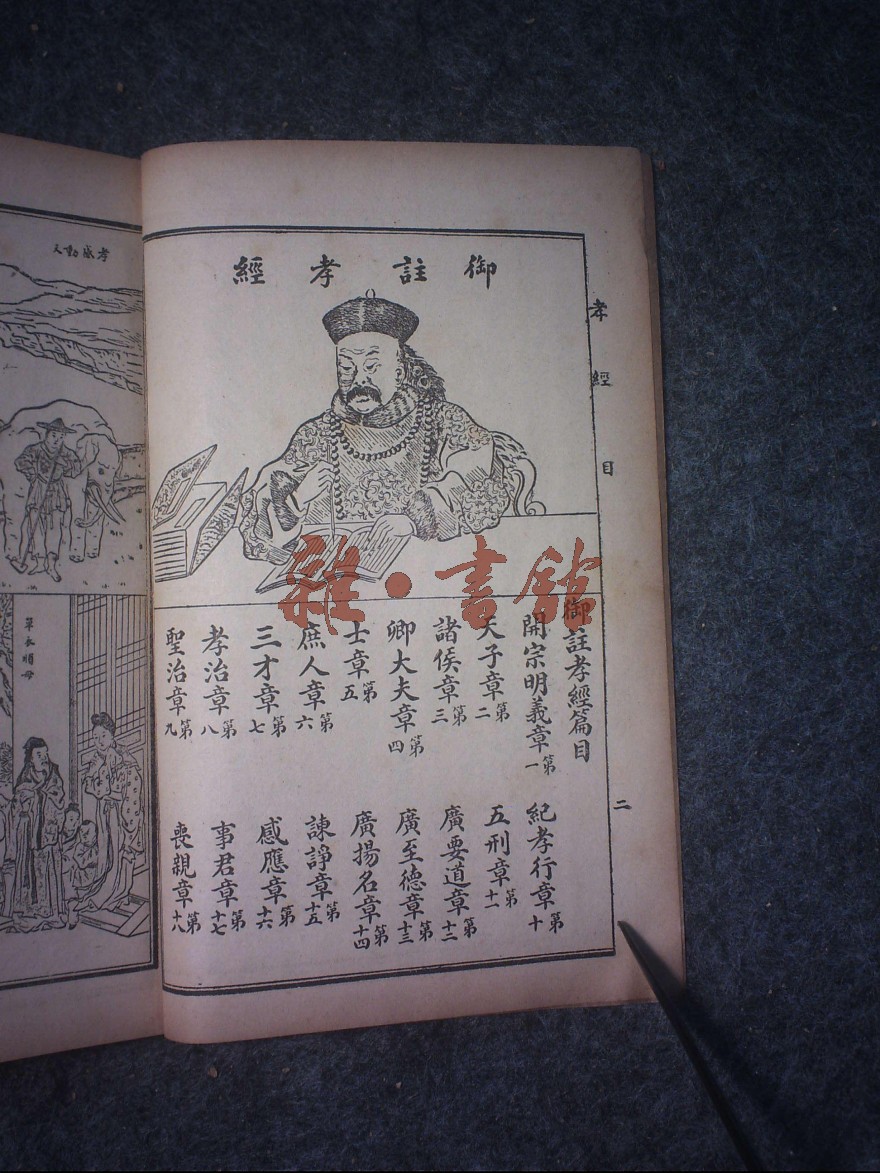 御註孝經
孝經 目
二
御註孝經篇目
開宗明義章第一
天子章第二
諸侯章第三
卿大夫章第四
士章第五
庶人章第六
三才章第七
孝治章第八
聖治章第九
紀孝行章第十
五刑章第十一
廣要道章第十二
廣至德章第十三
廣揚名章第十四
諫諍章第十五
感應章第十六
事君章第十七
喪親章第十八
孝感動天
單衣順母
雜·書館